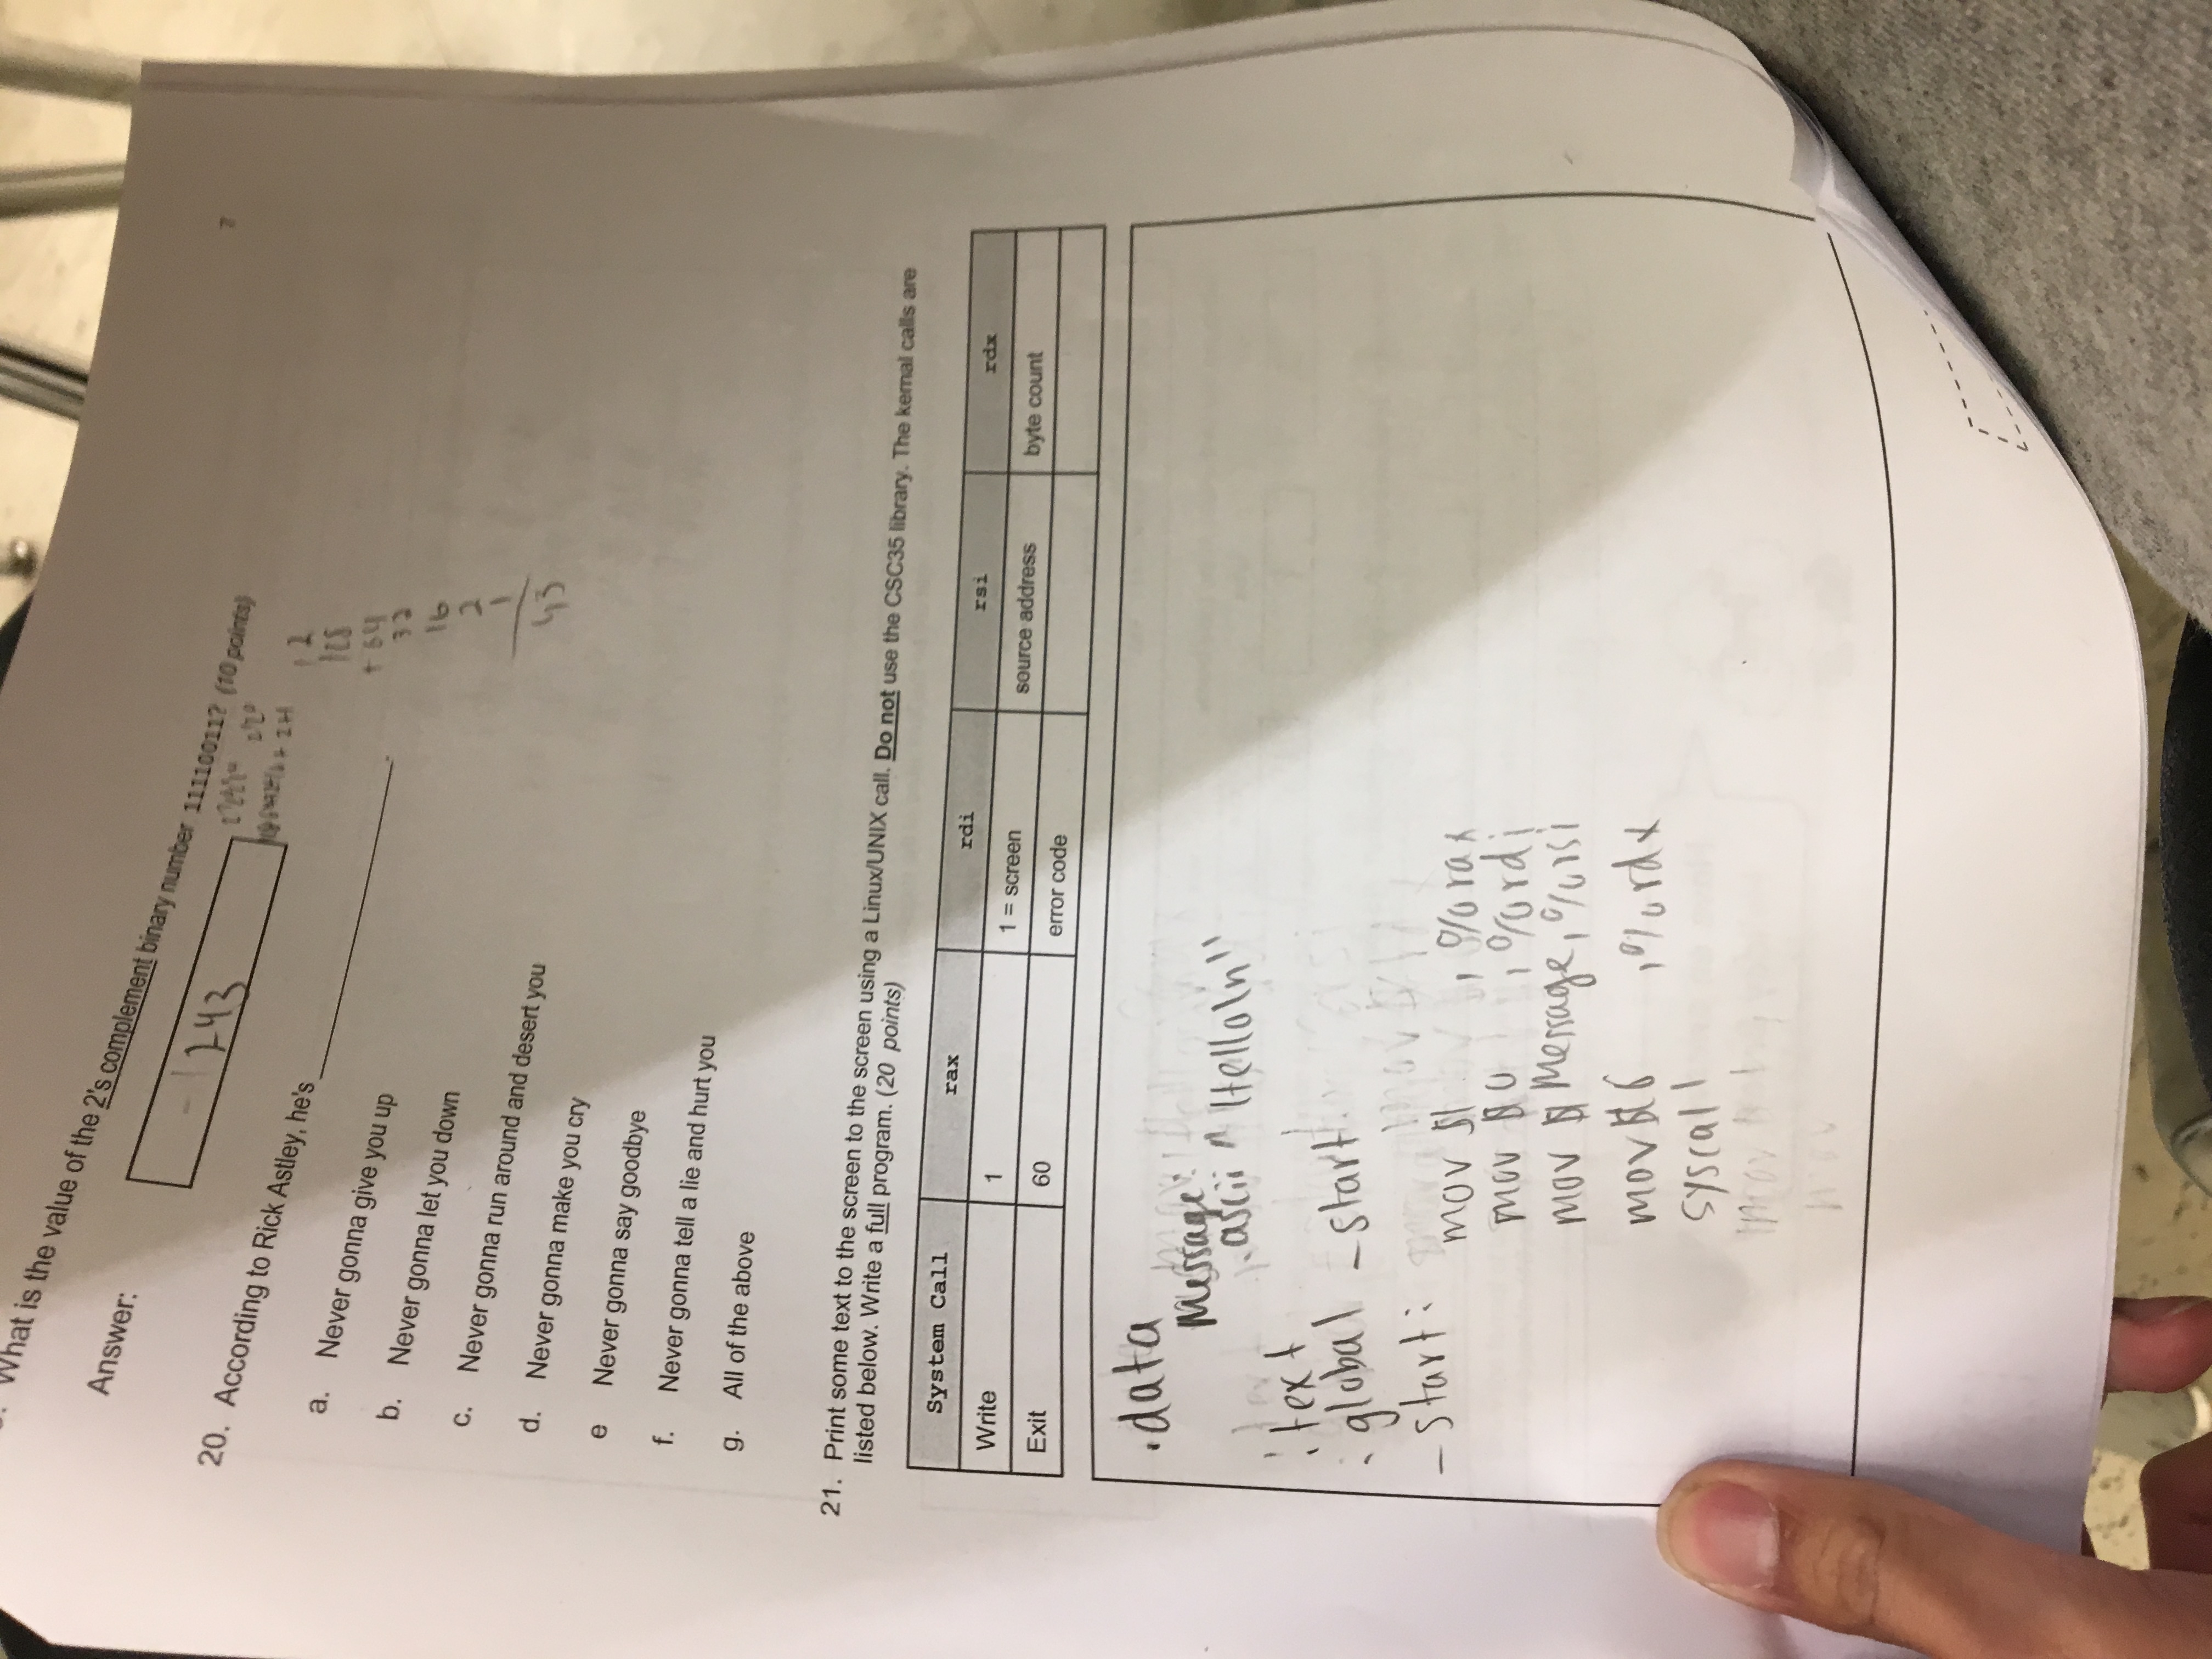 What is the value of the 2's complement binary number 11110011? (10 points)
7
Answer:
243
2
128
+ 64
32
16
2
1
43
20. According to Rick Astley, he's ____________.
a. Never gonna give you up
b. Never gonna let you down
c. Never gonna run around and desert you
d. Never gonna make you cry
e Never gonna say goodbye
f. Never gonna tell a lie and hurt you
g. All of the above
21. Print some text to the screen to the screen using a Linux/UNIX call. Do not use the CSC35 library. The kernal calls are
listed below. Write a full program. (20 points)
System Call rax rdi rsi rdx
Write 1 1 = screen source address byte count
Exit 60 error code
.data
Message:
.ascii "Hello\n"
.text
.global _start
_start:
mov $1 , %rax
mov $0 , %rdi
mov $Message, %rsi
mov $6 , %rdx
syscall